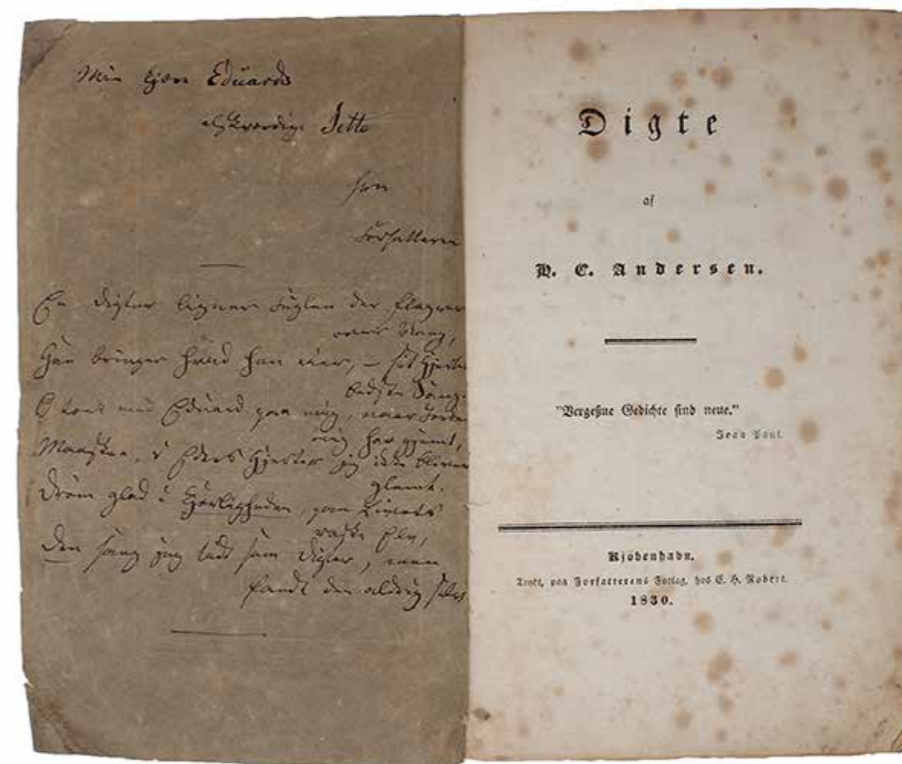 Min kjære Eduards
elskværdige Jette
fra
Forfatteren
En Digter ligner Fuglen der flagrer
over Vang,
Han bringer hvad han eier, – sit Hjertes
bedste Sang.
O tænk med Eduard paa mig, naar Jorden
mig har gjemt,
Maaskee, i Eders Hjerter jeg ikke bliver
glemt.
Drøm glad i Kjærligheden, paa Livets
raske Elv,
Den sang jeg tidt som Digter, men
fandt den aldrig selv
Digte
af
H. C. Andersen.
"Vergeßne Gedichte sind neue."
Jean Paul.
Kjöbenhavn.
Trykt, paa Forfatterens Forlag, hos E. H. Robert.
1830.